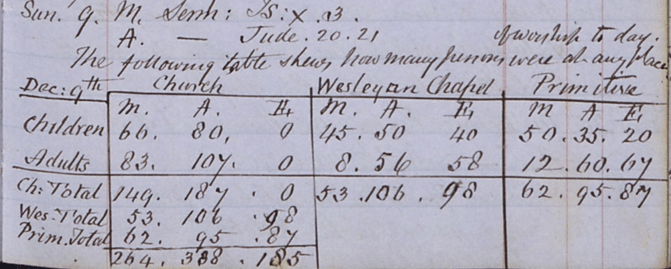 Sun. 9. M. Serm: Is: X. 3.
A. — Jude. 20. 21
of worship to day.
The following table shews how many persons were at any place
Dec: 9th Church Wesleyan Chapel Primitive
M. A. E. M. A. E. M A E.
Children 66. 80, 0 45. 50 40 50. 35. 20
Adults 83. 107. 0 8. 56 58 12. 60. 67
Ch: Total 149. 187. 0 53. 106. 98 62. 95. 87
Wes: Total 53. 106 .98
Prim. Total 62. 95 .87
264. 388. 185